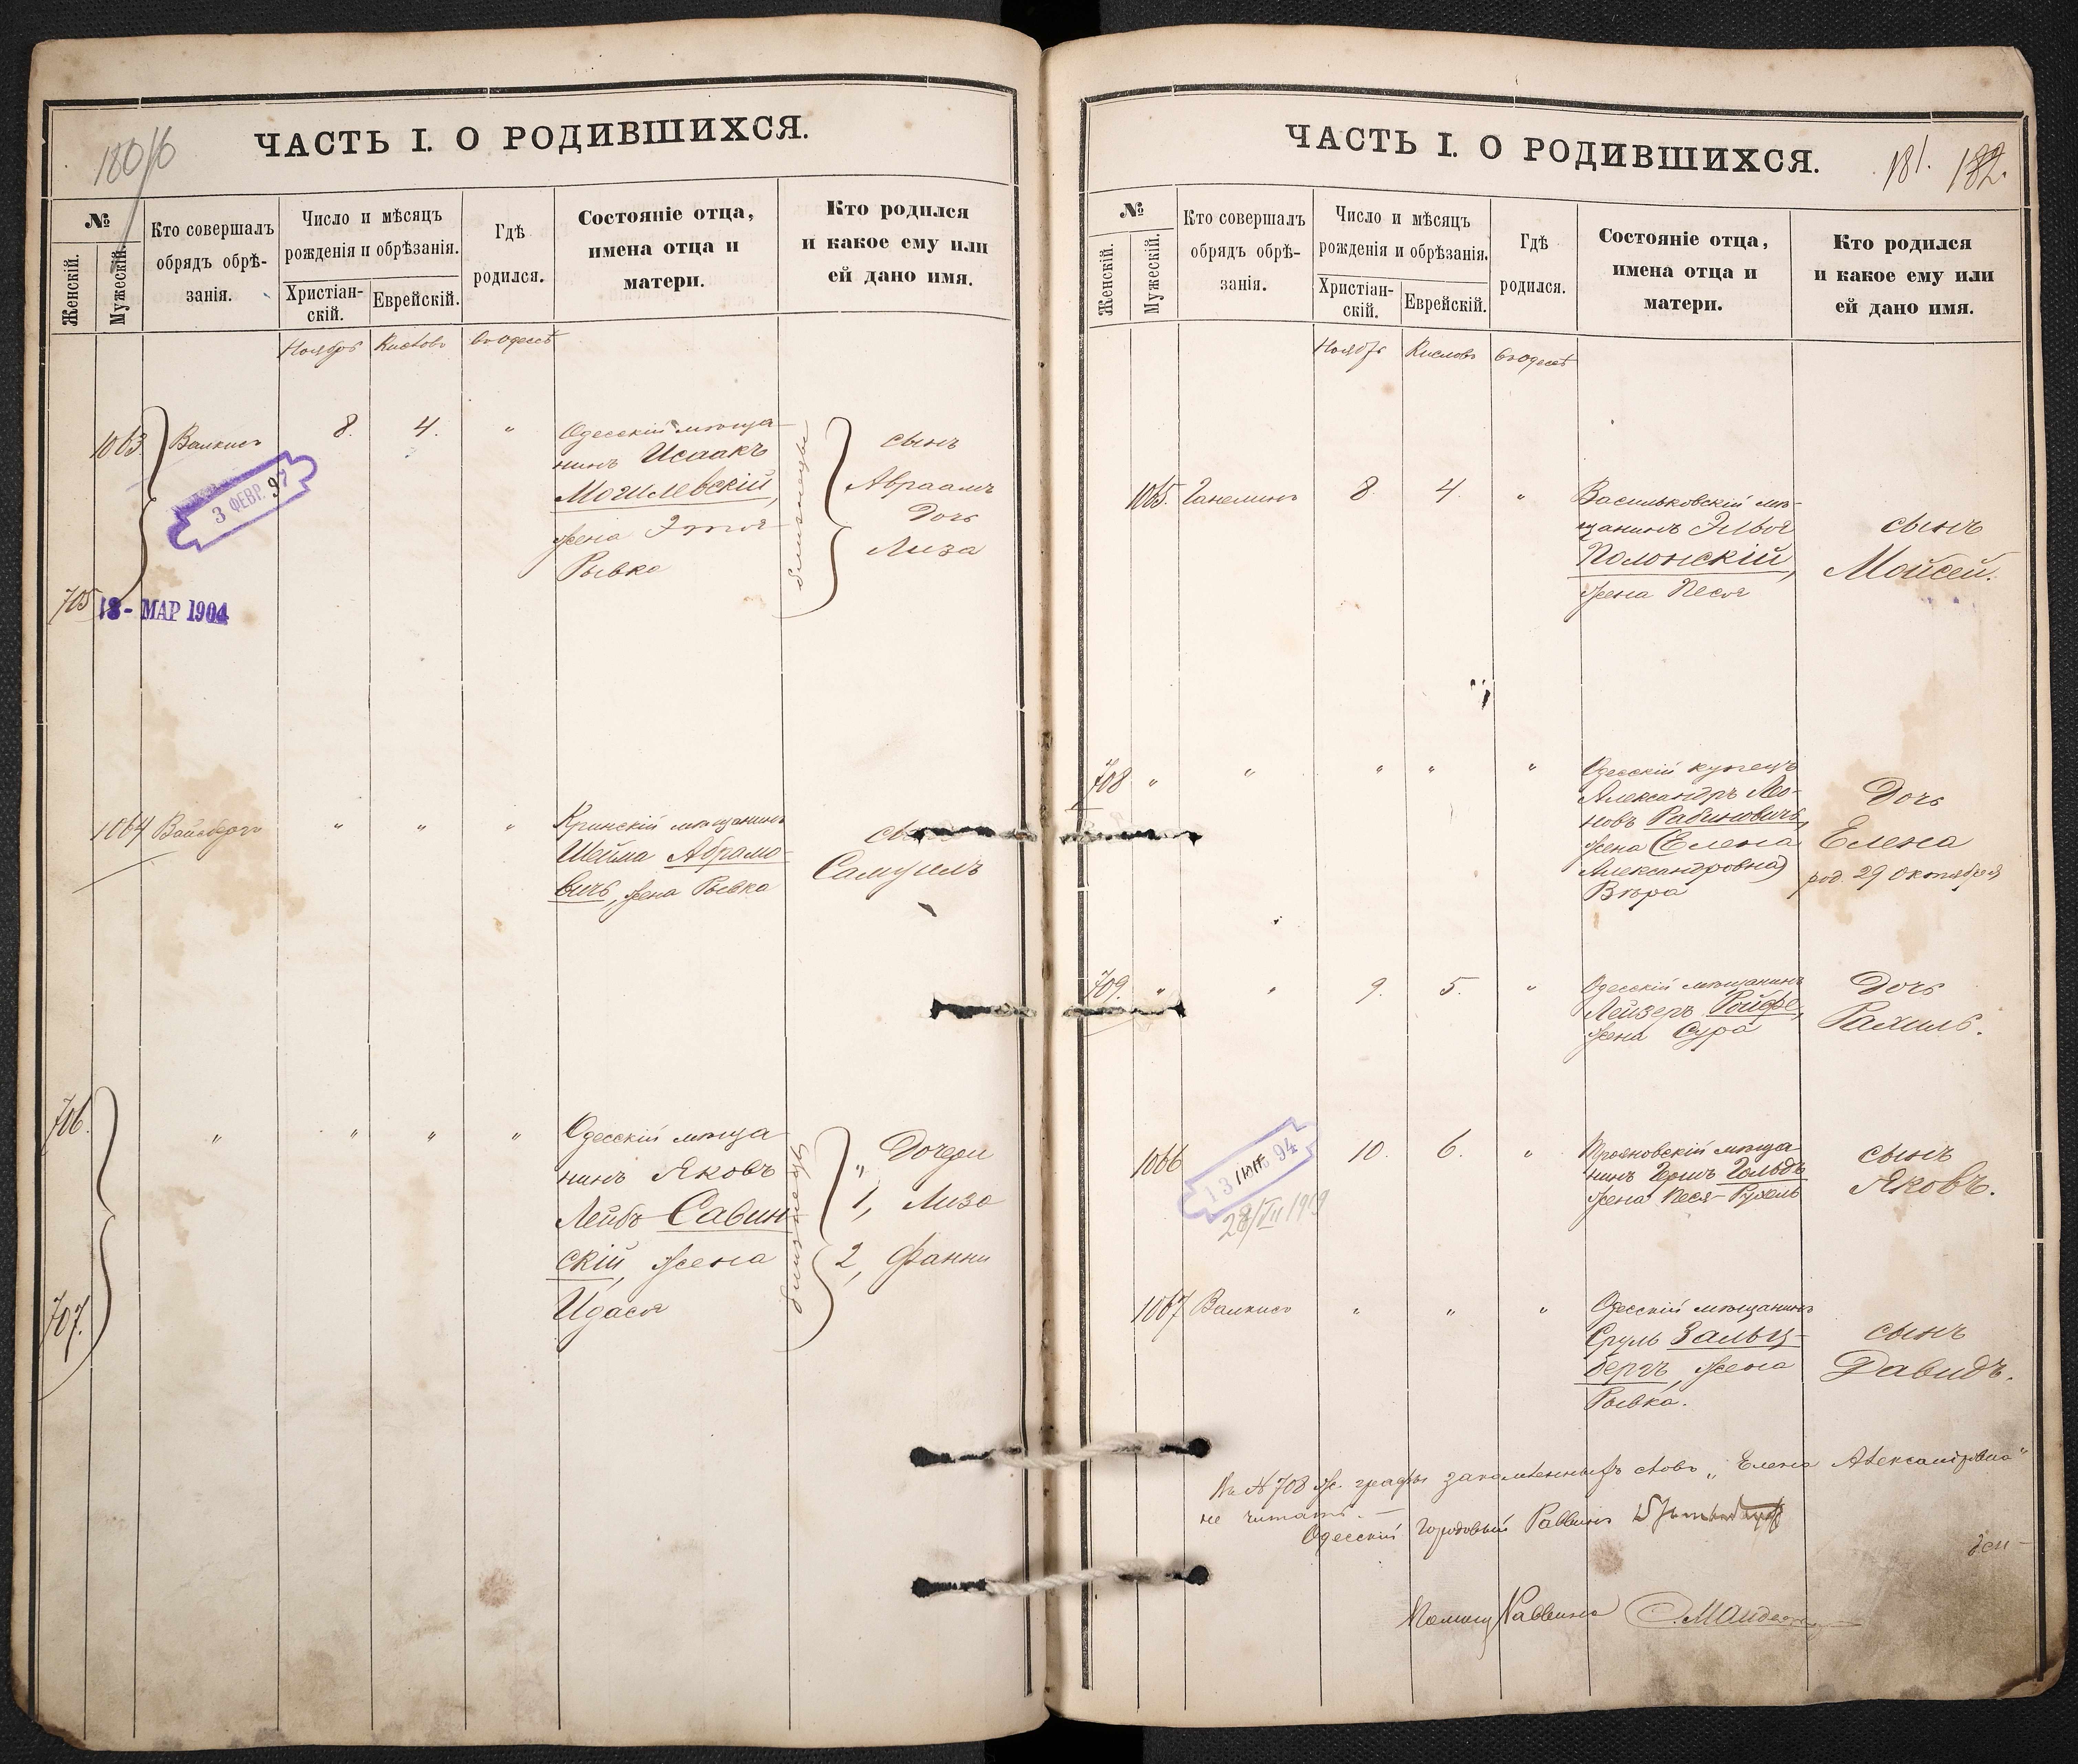 180/6
ЧАСТЬ I. О РОДИВШИХСЯ.
№
Женскій.
Мужескій.
Кто совершалъ
обрядъ обрѣ-
занія.
Число и мѣсяцъ
рожденія и обрѣзанія.
Христіан-
скій.
Еврейскій.
Гдѣ
родился.
Состояніе отца,
имена отца и
матери.
Кто родился
и какое ему или
ей дано имя.
Ноябрь Кислевъ въ Одессѣ
1063
705
Валкисъ
3 ФЕВР. 97
18 - МАР 1904
8. 4. "
Одесскій мѣща-
нинъ Исаакъ
Могилевскій,
жена Этля
Рывка
близнецы
сынъ
Авраамъ
Дочь
Лиза
1064 Вайсбергъ " " "
Кринскій мѣщанинъ
Шейма Абрамо-
вичъ, жена Рывка
Самуилъ
706.
707.
" " " "
Одесскій мѣща-
нинъ Яковъ
Лейбъ Савин-
скій, жена
Идася
близнецы
Дочери
1, Лиза
2, Фанни
ЧАСТЬ I. О РОДИВШИХСЯ.
181. 182.
№
Женскій.
Мужескій.
Кто совершалъ
обрядъ обрѣ-
занія.
Число и мѣсяцъ
рожденія и обрѣзанія.
Христіан-
скій.
Еврейскій.
Гдѣ
родился.
Состояніе отца,
имена отца и
матери.
Кто родился
и какое ему или
ей дано имя.
Ноябрь Кислевъ въ Одессѣ
1065. Ганелинъ 8. 4. "
Васильковскій мѣ-
щанинъ Элья
Полонскій,
жена Песя
сынъ
Мойсей.
708 " " " " "
Одесскій купецъ
Александръ Лео-
новъ Рабиновичъ,
жена (Елена
Александровна)
Вѣра
Дочь
Елена
род. 29 Октября
709. " " 9. 5. "
Одесскій мѣщанинъ
Лейзеръ Ройфе,
жена Сура
Дочь
Рахиль.
1066
13 94
28/VII 1919
10. 6. "
Трояновскій мѣща-
нинъ Гершъ Гольдъ
жена Песя-Рухель
сынъ
Яковъ.
1067 Валкисъ " " "
Одесскій мѣщанинъ
Сруль Зальц-
бергъ, жена
Рывка.
сынъ
Давидъ.
Въ № 708 ж. графы заключенныхъ словъ „Елена Александровна"
не читать.—
Одесскій Городовый Раввинъ
Помощ Раввина